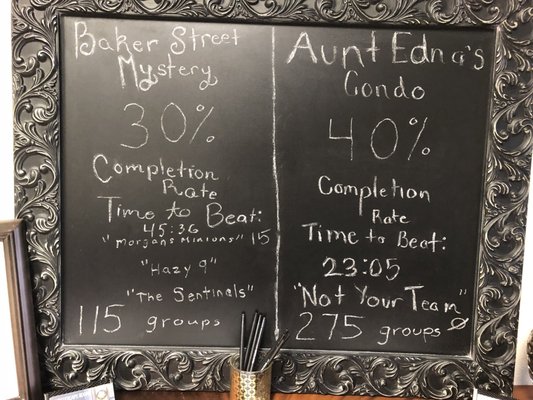 Baker Street
Mystery
30%
Completion
Rate
Time to Beat:
45:36
"Morgans Minions" 15
"Hazy 9"
"The Sentinals"
115 groups
Aunt Edna's
Condo
40%
Completion
Rate
Time to Beat:
23:05
"Not Your Team"
275 groups